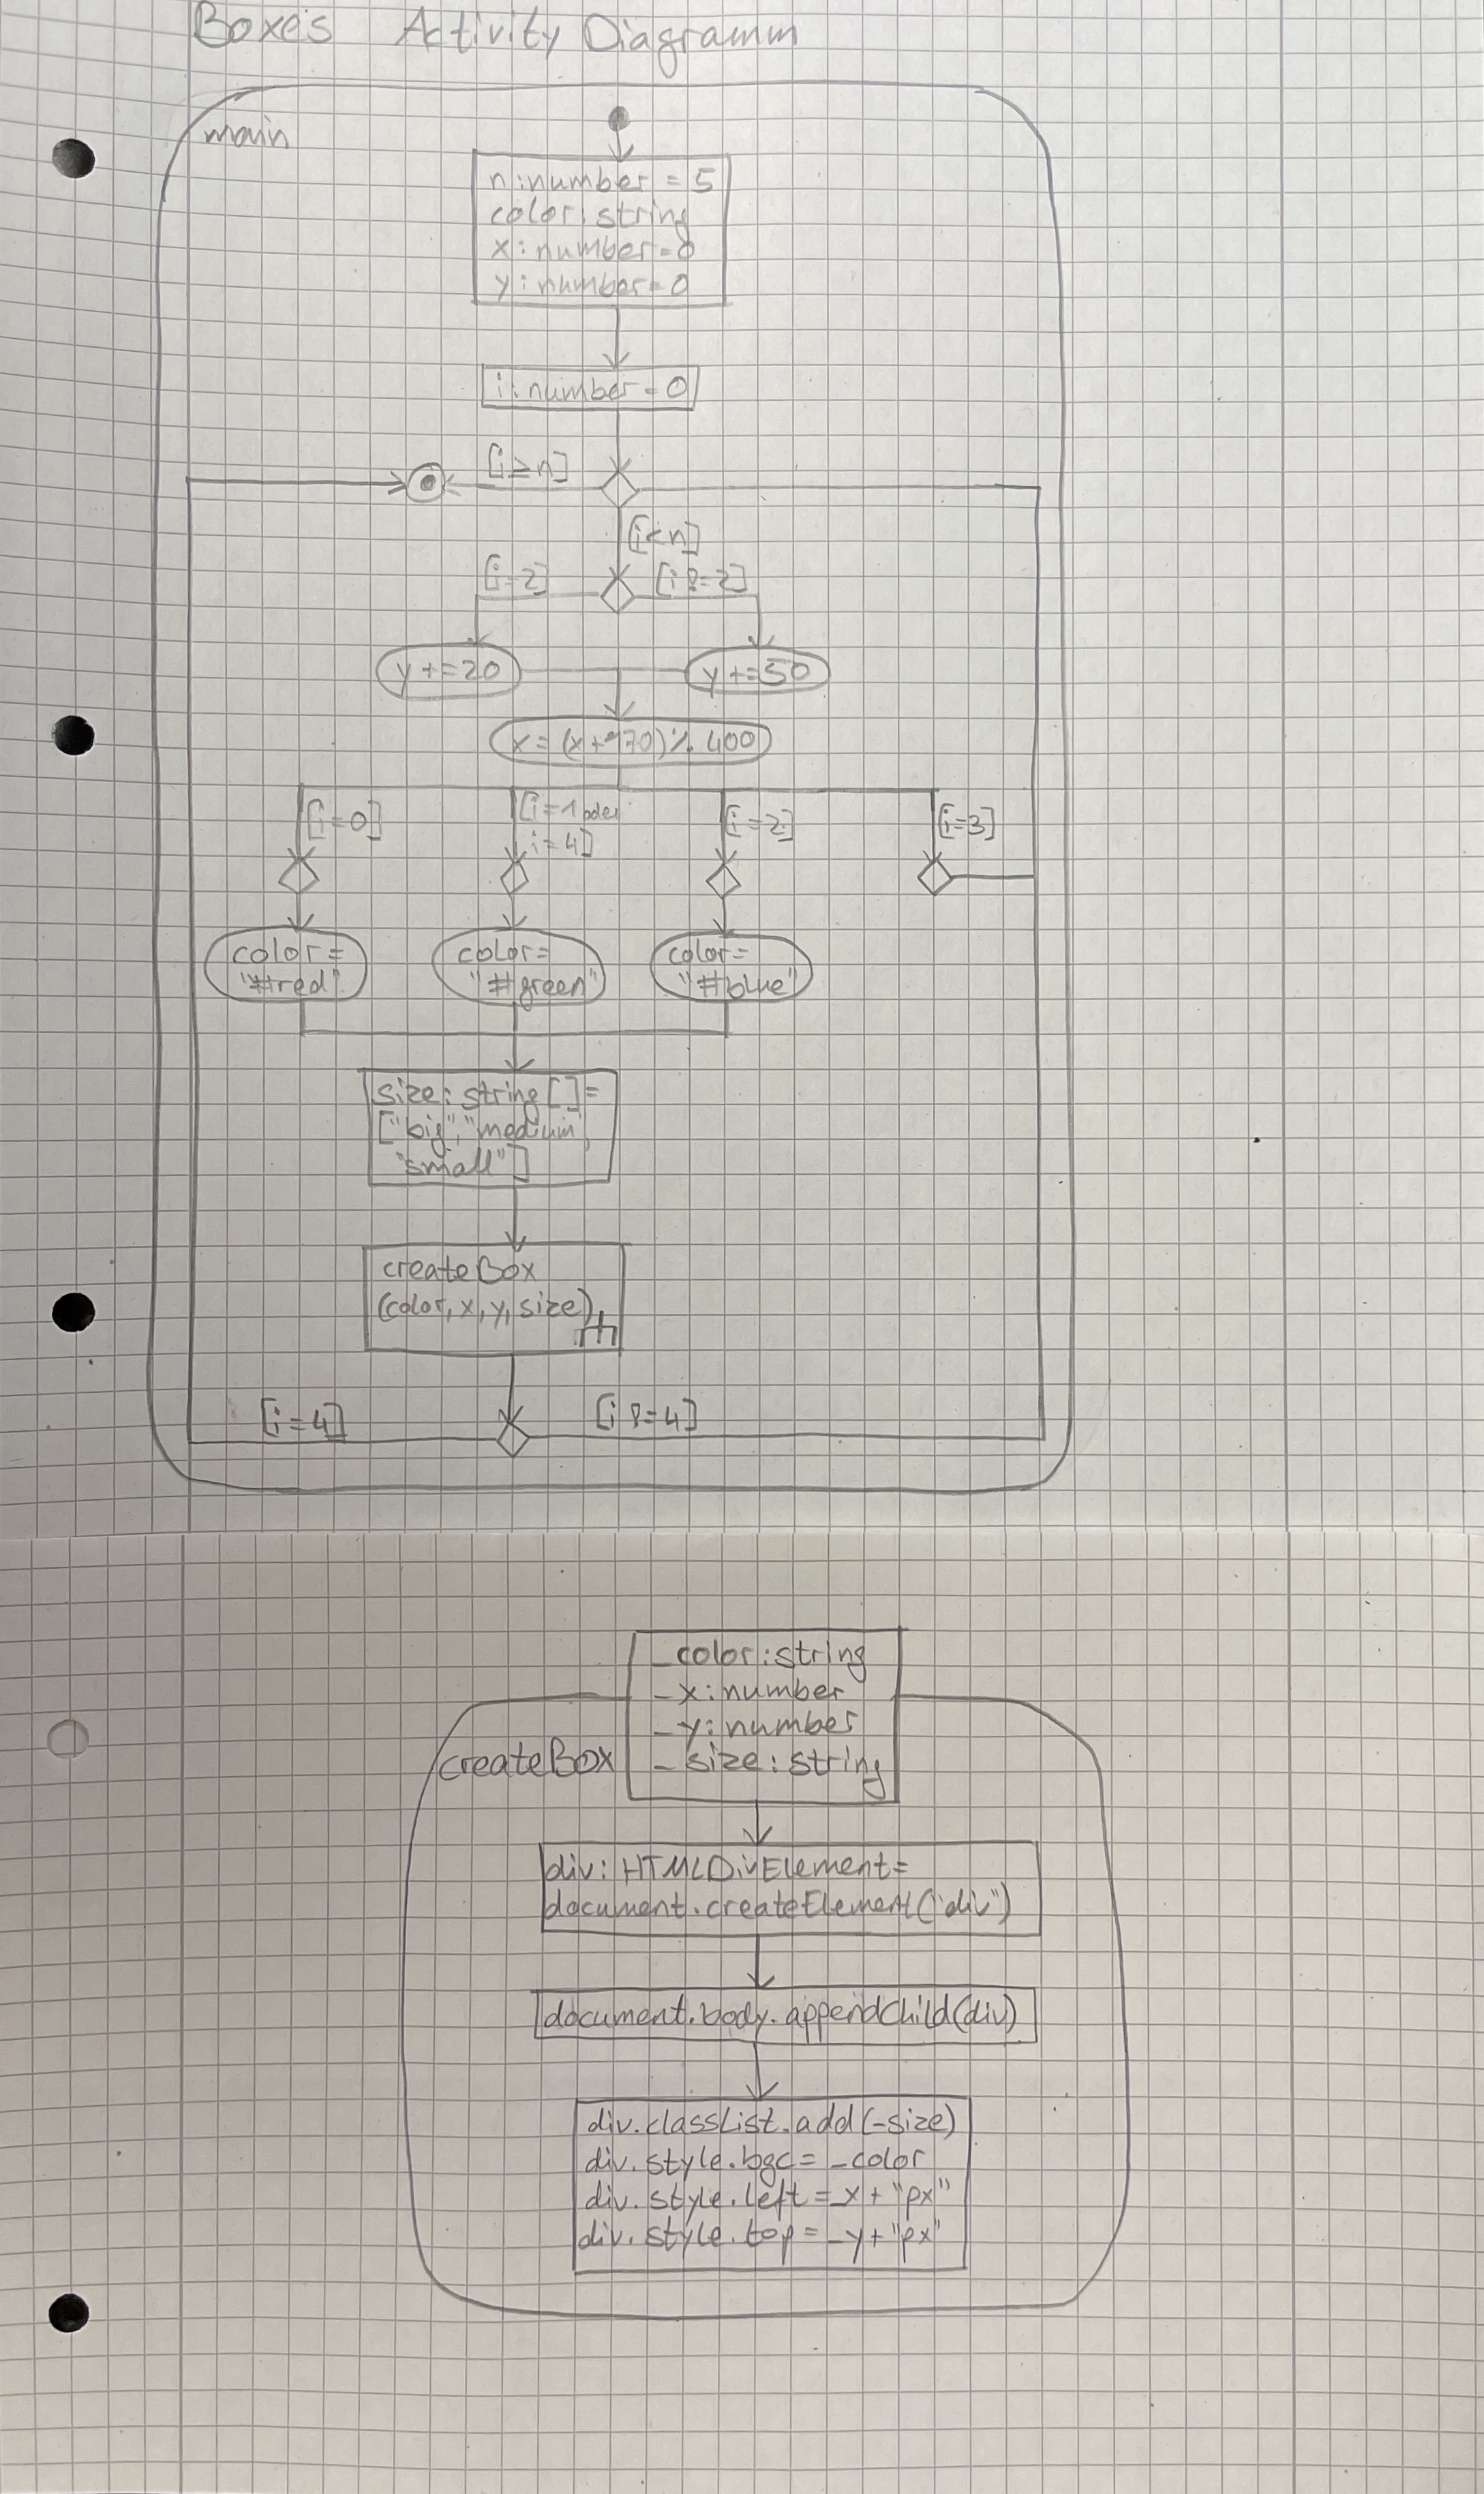 Boxes Activity Diagramm
main
n:number = 5
color:string
x:number=0
y:number=0
i:number=0
[i≥n]
[i<n]
[i=2]
[i!=2]
y+=20
y+=50
x=(x+170)% 400
[i=0]
[i=1 oder
i=4]
[i=2]
[i=3]
color=
"#red"
color=
"#green"
color=
"#blue"
size: string[]=
["big","medium",
"small"]
createBox
(color, x, y, size)
[i=4]
[i!=4]
_color:string
_x:number
_y:number
_size:string
createBox
div: HTMLDivElement=
document.createElement("div")
document.body.appendChild(div)
div.classList.add(_size)
div.style.bgc=_color
div.style.left=_x+"px"
div.style.top=_y+"px"